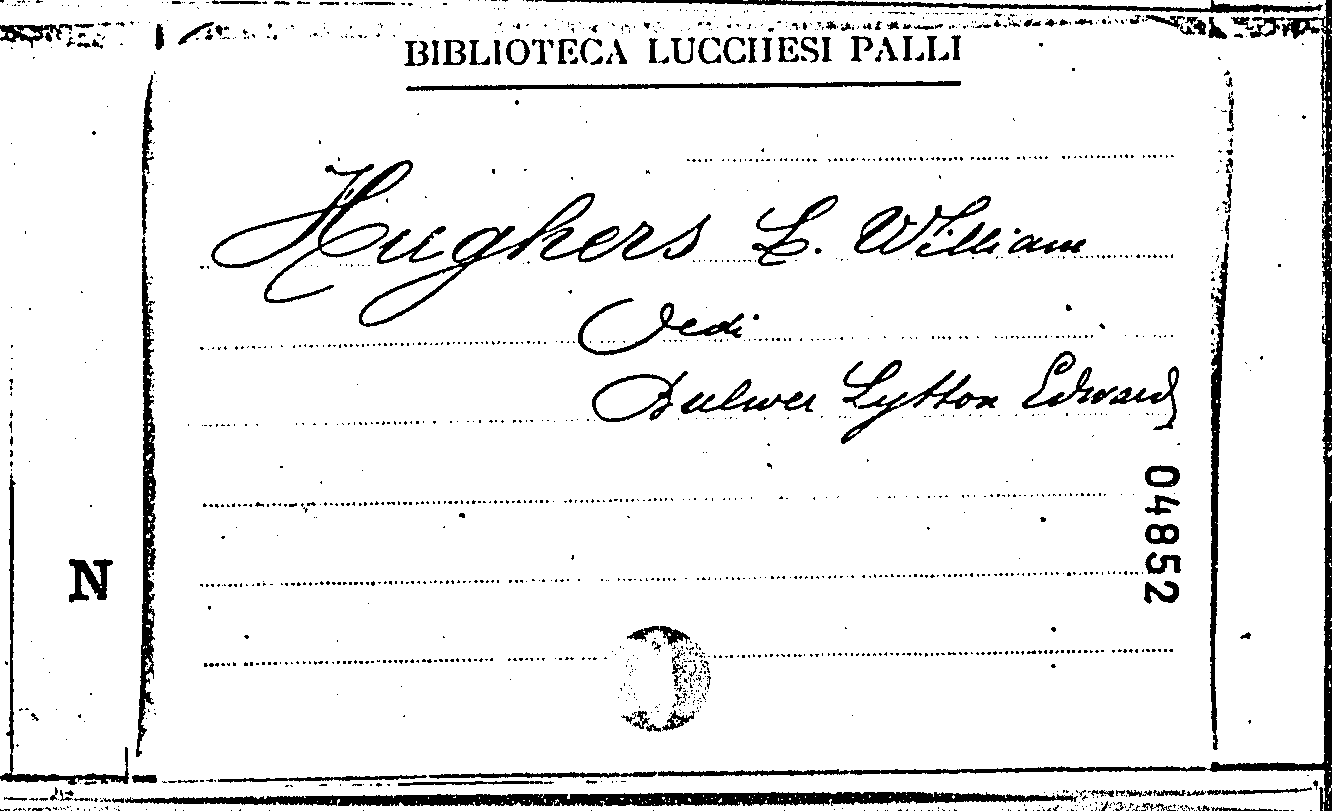 BIBLIOTECA LUCCHESI PALLI
Hughers L. William
Vedi
Bulwer Lytton Edward
04852
N